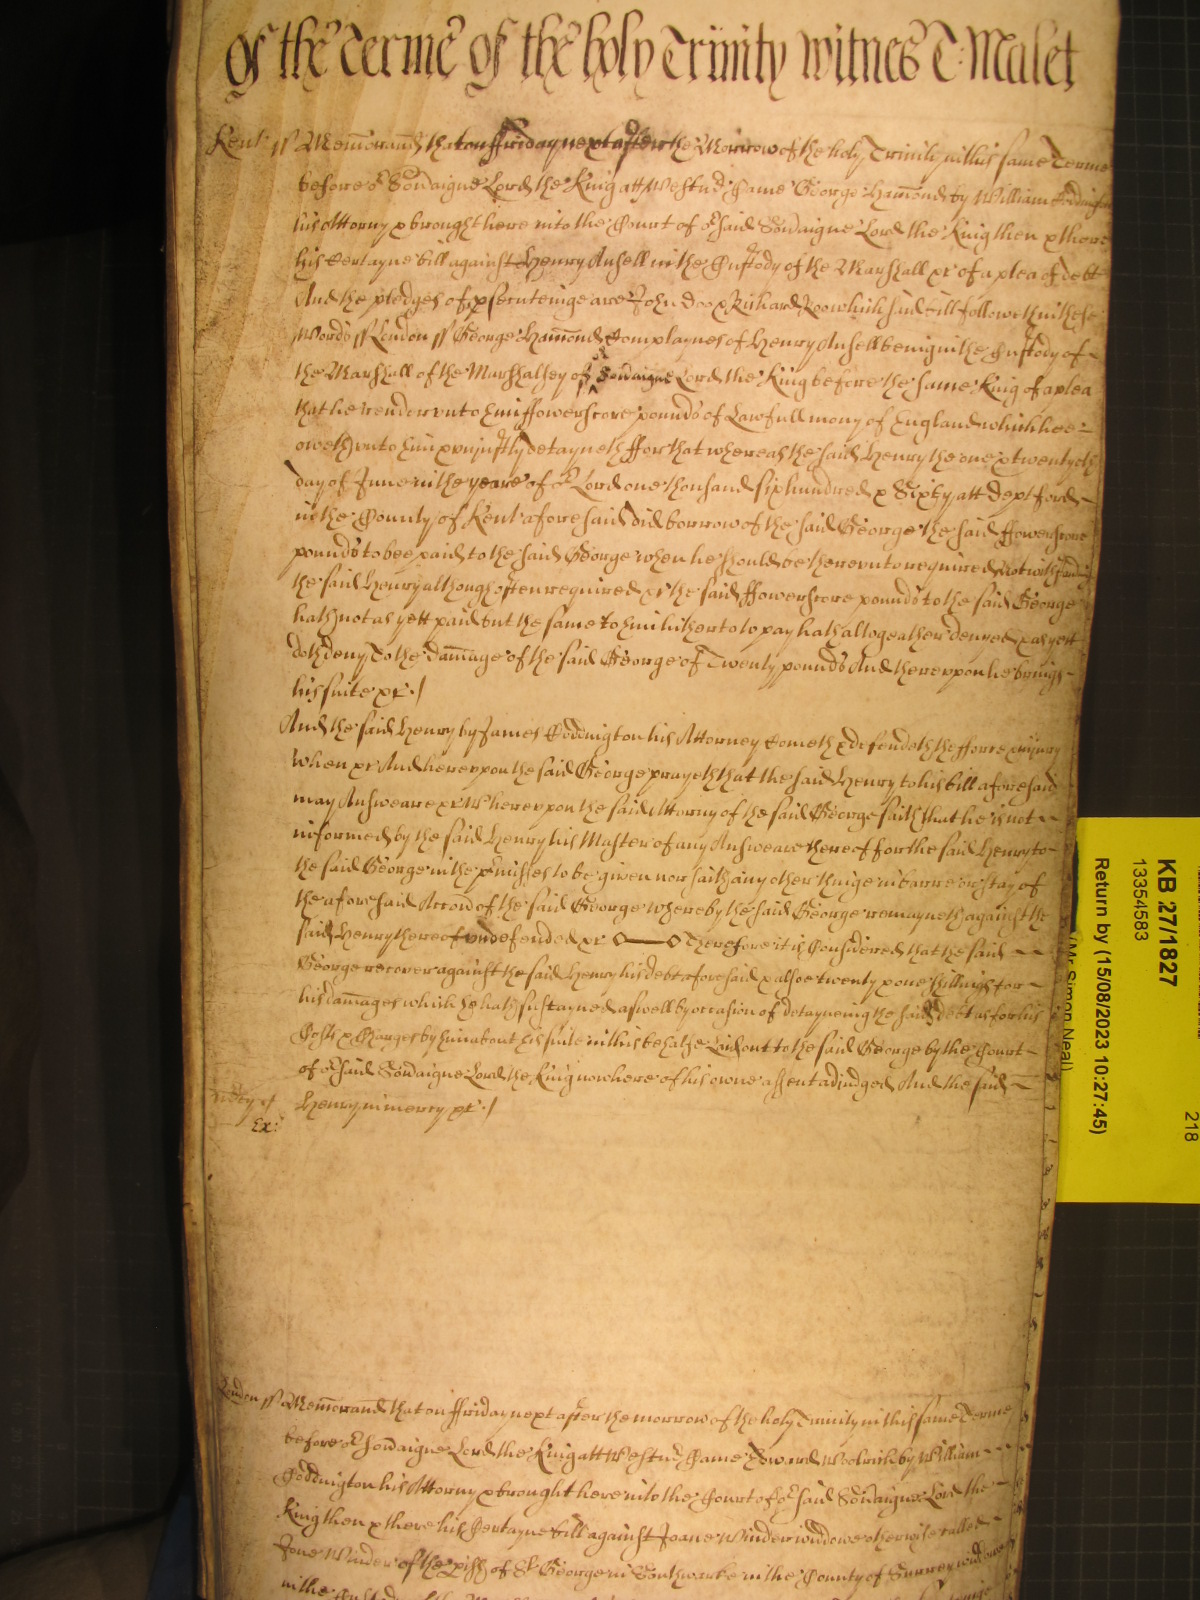 of the Terme of the holy Trinity witnes T: Malet
Kent ss Memorand that on ffriday next after the Morrow of the holy Trinity in this same Terme
before or Sovaigne Lord the King att Westmr Came George Hamond by William Coddington
his Attorny & brought here into the Court of or said Sovaigne Lord the King then & there
his Certayne bill against Henry Ansell in the Custody of the Marshall &c of a plea of debt
And the pledges of psecuteinge are John Doo & Richard Roo which said bill followeth in these
Words ss London ss George Hamond Complaynes of Henry Ansell being in the Custody of
the Marshall of the Marshalsey of or Sovaigne Lord the King before the same King of a plea
that he render unto him ffowerscore pounds of Lawfull mony of England which hee
oweth unto him & unjustly detayneth ffor that whereas the said Henry the one & twentyeth
day of June in the yeare of or Lord one thousand six hundred & Sixty att Deptford
in the County of Kent aforesaid did borrow of the said George the said ffowerscore
pounds to bee paid to the said George when he should be thereunto required Notwithstanding
the said Henry although often required &c the said ffowerscore pounds to the said George
hath not as yett paid but the same to him hitherto to pay hath altogeather denyed & as yett
doth deny To the damage of the said George of Twenty pounds And thereupon he brings
his suite &c
And the said Henry by James Coddington his Attorney Cometh & defendeth the fforce & injury
when &c And hereupon the said George prayeth that the said Henry to his bill aforesaid
may Answeare &c Whereupon the said Attorny of the said George saith that he is not
informed by the said Henry his Master of any Answeare thereof for the said Henry to
the said George in the pmisses to be given nor saith any other thinge in barre or stay of
the aforesaid Accon of the said George whereby the said George remayneth against the
said Henry thereof undefended &c Therefore it is Considered that the said
George recover against the said Henry his debt aforesaid & alsoe twenty & one shillings for
his damages which he hath sustayned aswell by occasion of detayneing the said debt as for his
Costs & Charges by him about his suite in this behalfe Laid out to the said George by the Court
of or said Sovaigne Lord the King now here of his owne assent adjudged And the said
Henry in mercy &c
Ex:
London ss Memorand that on ffriday next after the morrow of the holy Trinity in this same Terme
before or Sovaigne Lord the King att Westmr Came Edward Woolrich by William
Coddington his Attorny & brought here into the Court of or said Sovaigne Lord the
King then & there his Certayne bill against Joane Winder widdowe otherwise called
Jone Winder of the pish of St George in Southwarke in the County of Surrey widdowe
in the Custody of the
KB 27/1827
13354583
Return by (15/08/2023 10:27:45)
(Mr Simon Neal)
218